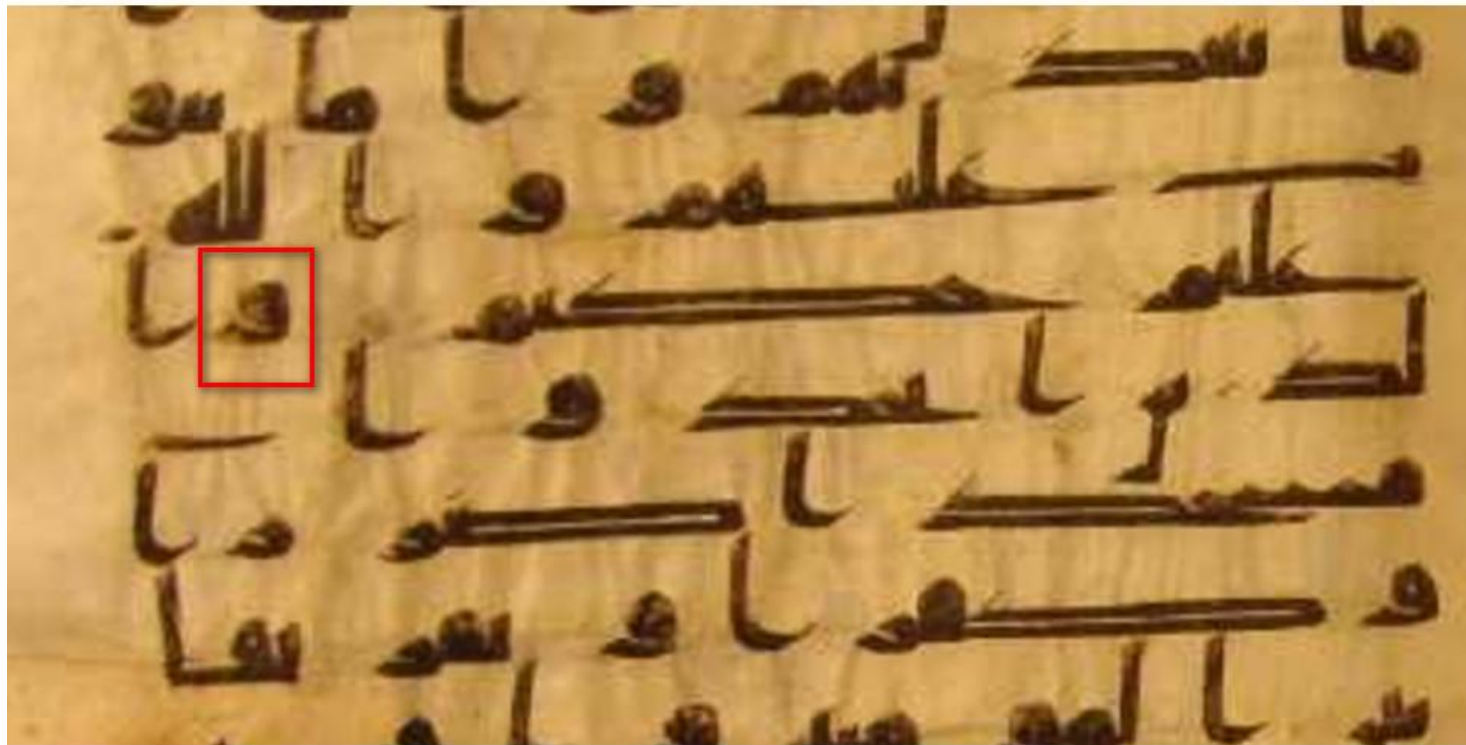 اما يعذبهم واما يتو
ب عليهم والله
عليم حكيم وا
لذين اتخذوا
مسجدا ضرارا
وكفرا وتفريقا
بين المومنين